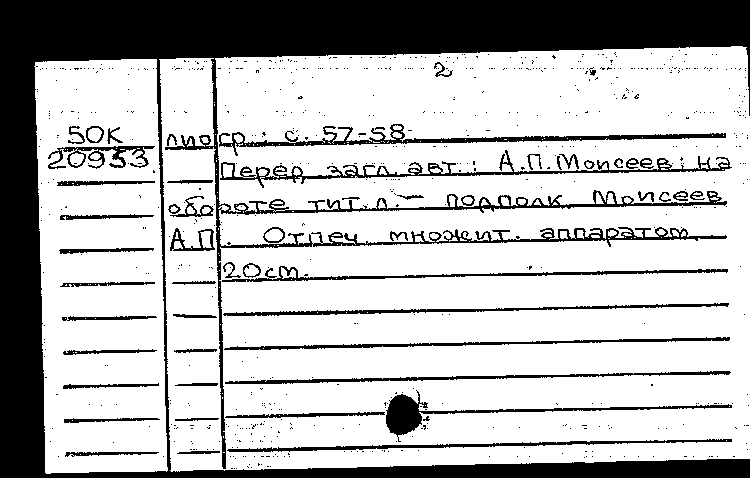 2
50К лиогр.: с. 57-58
20953
Перед загл. авт.: А.П.Моисеев; на
обороте тит.л. — подполк. Моисеев
А.П. Отпеч. множит. аппаратом.
20см.